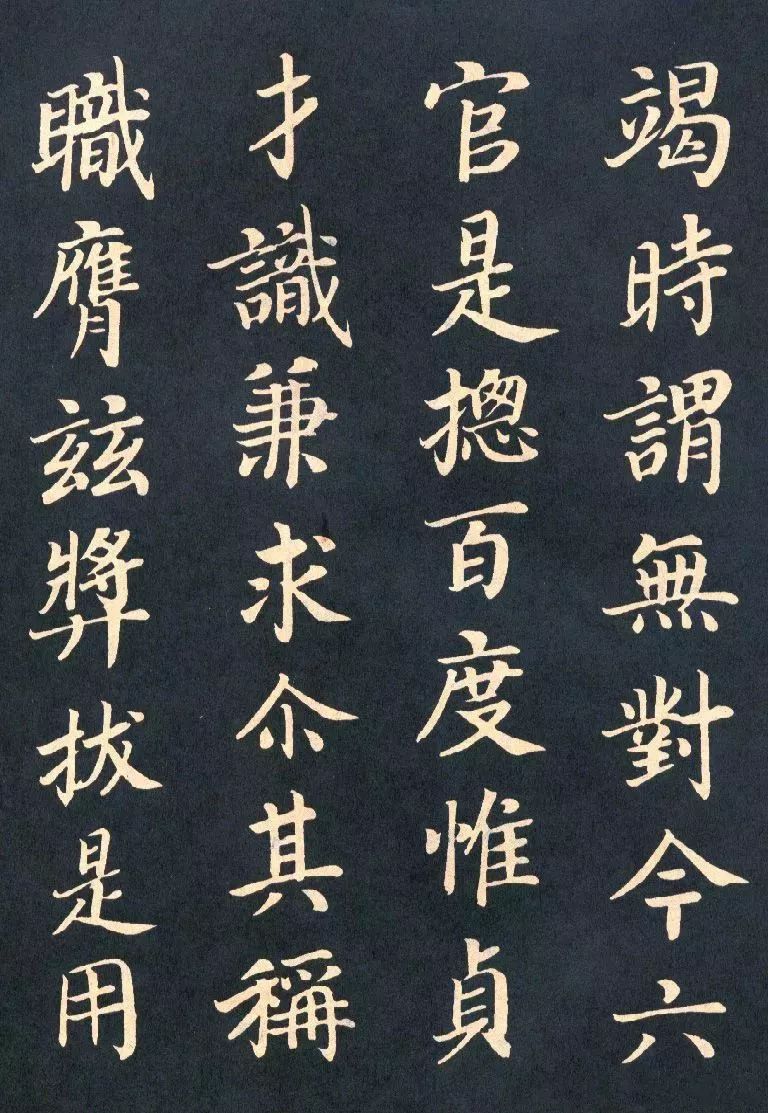 竭時謂無對今六
官是摠百度惟貞
才識兼求尒其稱
職膺兹獎拔是用